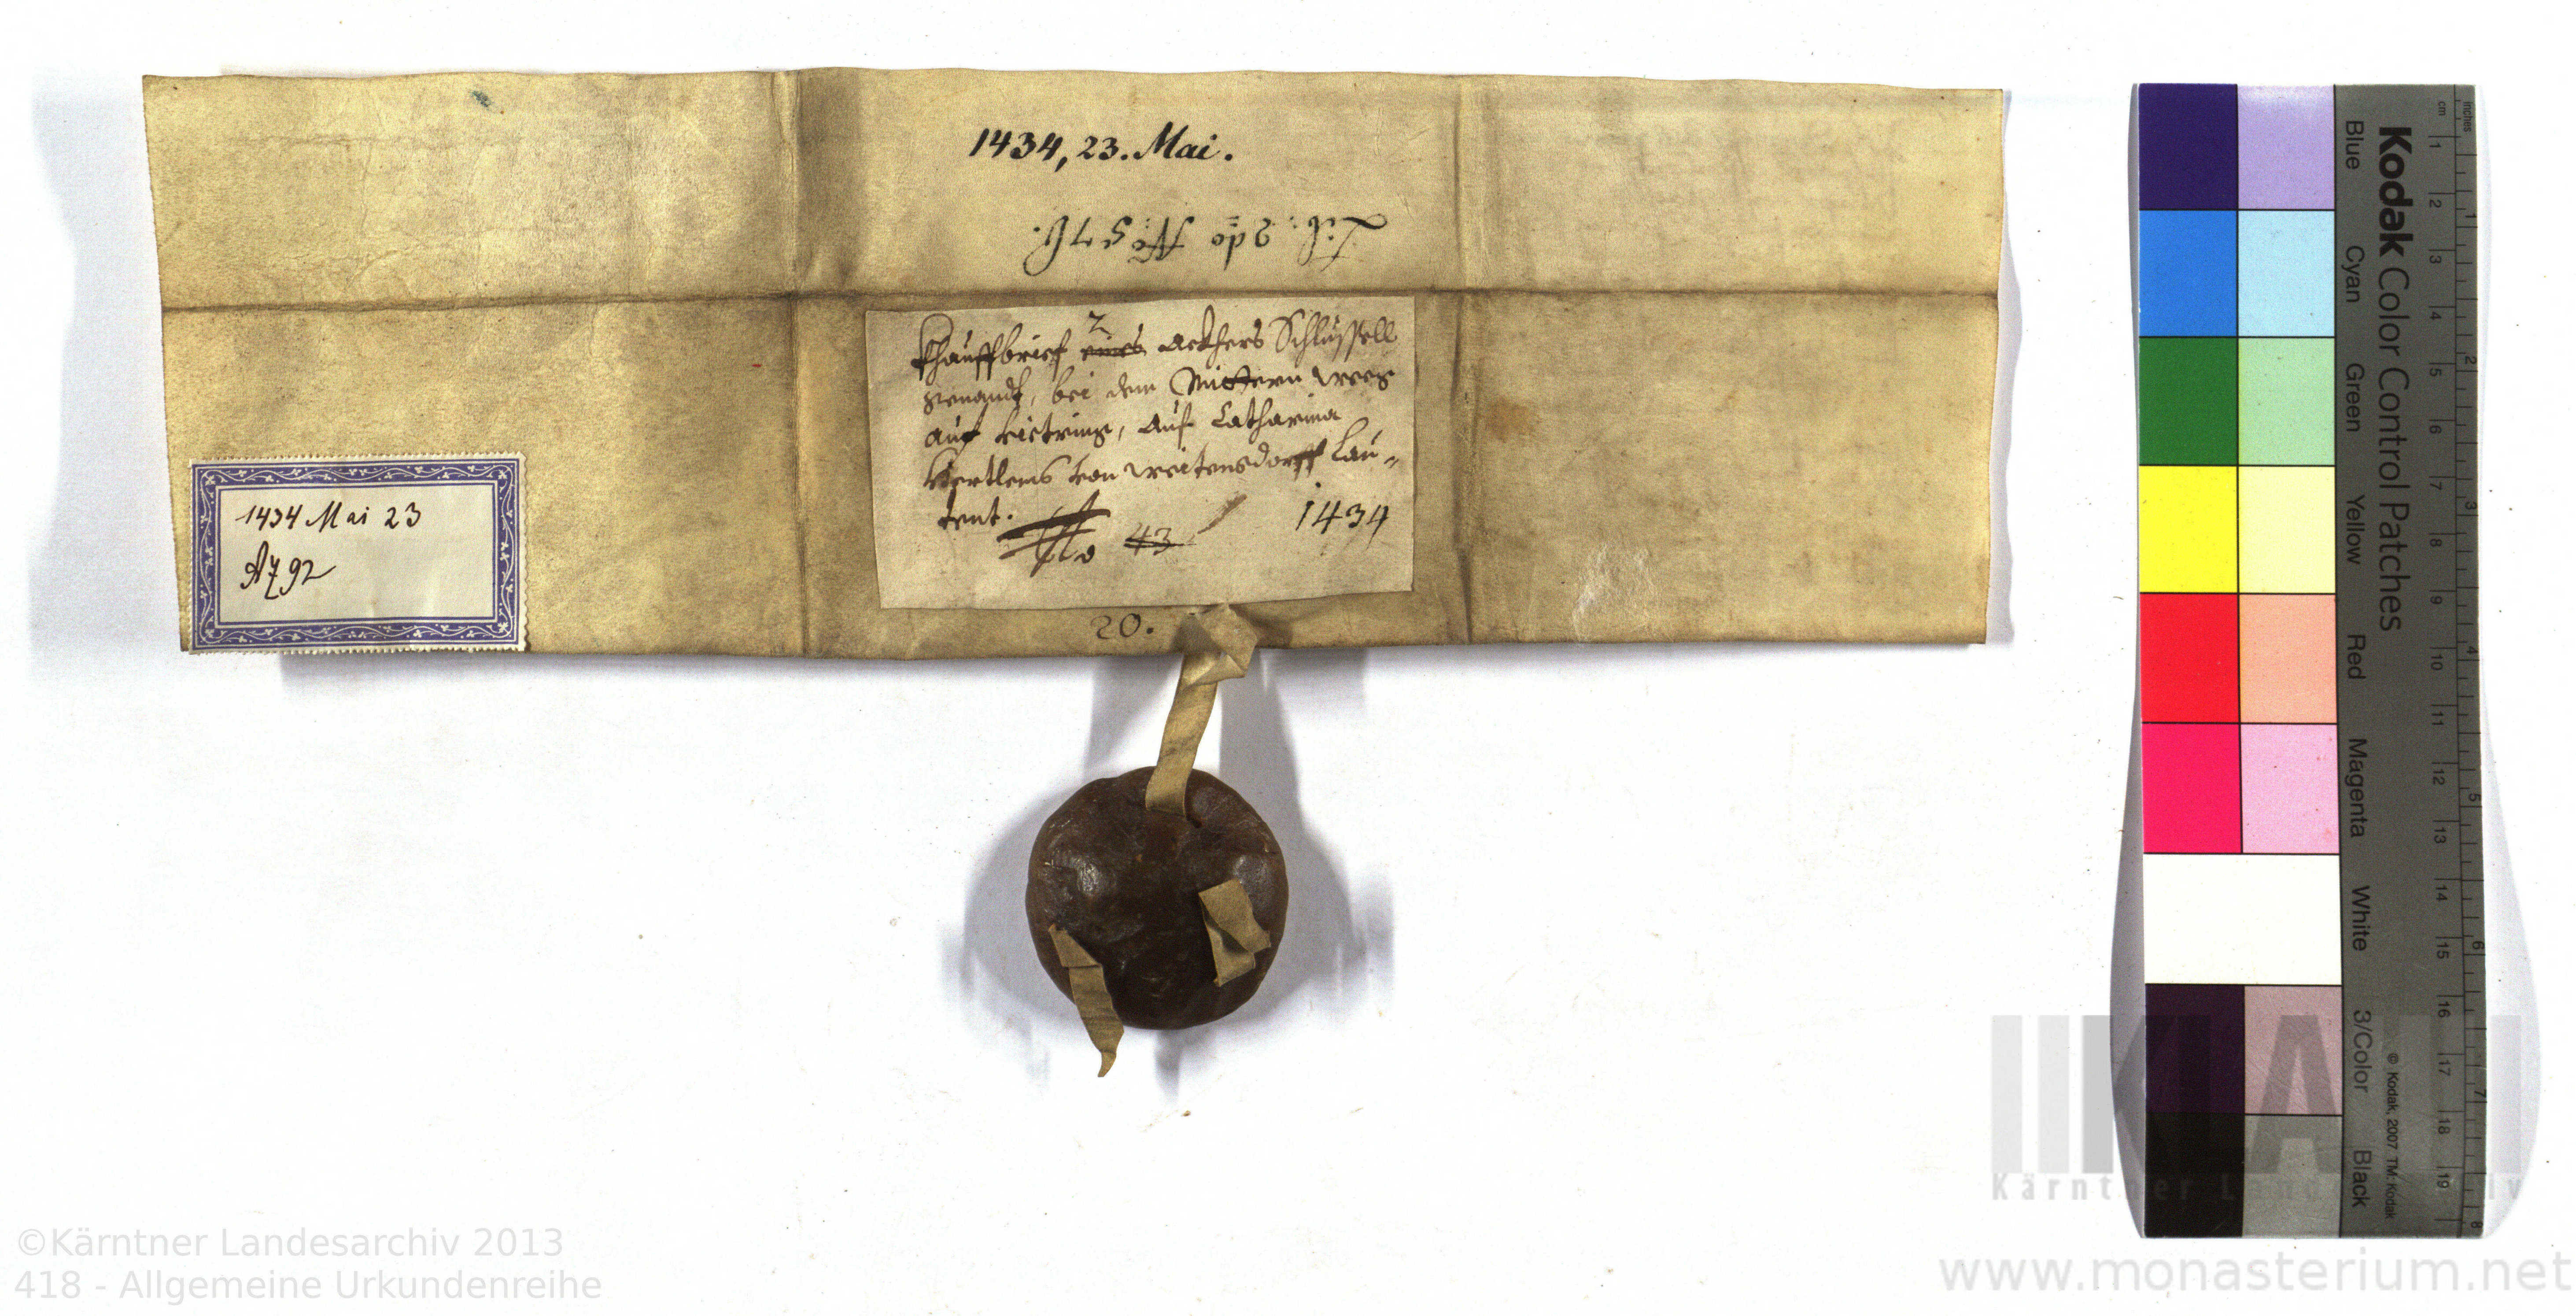 1434, 23. Mai.
Lib: 2do No 576.
Khauffbrief 2 eines Ackhers Schlüssell
genandt, bei dem Mittern weeg
auf Victring, Auf Catharina
von Weitensdorff Lau-
tent.
No 43 1434
20.
1434 Mai 23
A 792
Kodak Color Control Patches
Blue Cyan Green Yellow Red Magenta White 3/Color Black
© Kodak, 2007 TM: Kodak
inches
cm
1 2 3 4 5 6 7 8 9 10 11 12 13 14 15 16 17 18 19
1 2 3 4 5 6 7 8
©Kärntner Landesarchiv 2013
418 - Allgemeine Urkundenreihe
Kärntner Landesarchiv
www.monasterium.net